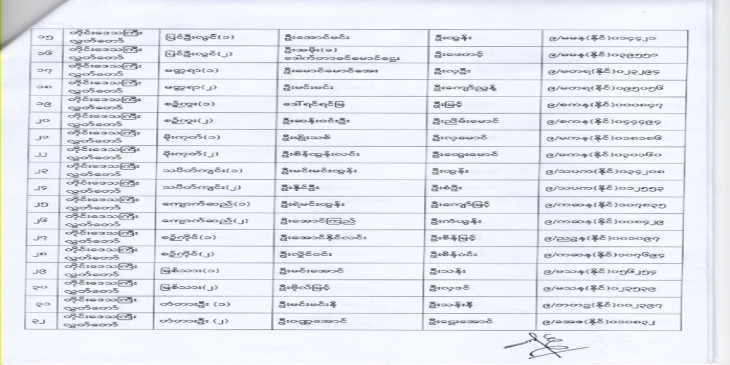 ၁၅ တိုင်းဒေသကြီး လွှတ်တော် ပြင်ဦးလွင်(၁) ဦးအောင်မင်း ဦးထွန်း ၉/မမန(နိုင်)၀၁၄၄၂၁
၁၆ တိုင်းဒေသကြီး လွှတ်တော် ပြင်ဦးလွင်(၂) ဦးအမိုး(ခ) ဒေါက်တာခင်မောင်ဌွေး ဦးဖေတင့် ၉/မမန(နိုင်)၀၃၉၅၅၁
၁၇ တိုင်းဒေသကြီး လွှတ်တော် မတ္တရာ(၁) ဦးမောင်မောင်အေး ဦးလှဦး ၉/မတရ(နိုင်)၀၂၃၂၉၄
၁၈ တိုင်းဒေသကြီး လွှတ်တော် မတ္တရာ(၂) ဦးမင်းမင်း ဦးကျော်ညွန့် ၉/မတရ(နိုင်)၀၉၅၀၅၆
၁၉ တိုင်းဒေသကြီး လွှတ်တော် စဉ့်ကူး(၁) ဒေါ်ရင်ရင်မြ ဦးမြင့် ၉/စကန(နိုင်)၀၀၀၈၄၇
၂၀ တိုင်းဒေသကြီး လွှတ်တော် စဉ့်ကူး(၂) ဦးဆန်းဝင်းဦး ဦးညိမ်းမောင် ၉/စကန(နိုင်)၀၄၄၄၉၄
၂၁ တိုင်းဒေသကြီး လွှတ်တော် မိုးကုတ်(၁) ဦးမျိုးသစ် ဦးလှမောင် ၉/မကန(နိုင်)၀၁၈၁၈၆
၂၂ တိုင်းဒေသကြီး လွှတ်တော် မိုးကုတ်(၂) ဦးစိန်ထွန်းလင်း ဦးထွေးမောင် ၉/မကန(နိုင်)၀၃၀၀၆၀
၂၃ တိုင်းဒေသကြီး လွှတ်တော် သပိတ်ကျင်း(၁) ဦးမင်းမင်းထွန်း ဦးထွန်း ၉/သပက(နိုင်)၀၃၄၂၀၈
၂၄ တိုင်းဒေသကြီး လွှတ်တော် သပိတ်ကျင်း(၂) ဦးနိုင်ဦး ဦးစံဦး ၉/သပက(နိုင်)၀၁၂၅၅၃
၂၅ တိုင်းဒေသကြီး လွှတ်တော် ကျောက်ဆည်(၁) ဦးရဲမင်းထွန်း ဦးကျော်မြင့် ၉/ကဆန(နိုင်)၁၀၇၈၃၅
၂၆ တိုင်းဒေသကြီး လွှတ်တော် ကျောက်ဆည်(၂) ဦးအောင်ကြည် ဦးကံယွန်း ၉/ကဆန(နိုင်)၀၀၈၄၂၉
၂၇ တိုင်းဒေသကြီး လွှတ်တော် စဉ့်ကိုင်(၁) ဦးအောင်နိုင်လင်း ဦးစိန်မြင့် ၉/ညဥန(နိုင်)၀၀၁၀၉၇
၂၈ တိုင်းဒေသကြီး လွှတ်တော် စဉ့်ကိုင်(၂) ဦးလှိုင်ဝင်း ဦးစိန်ဝင်း ၉/ကဆန(နိုင်)၀၀၇၆၉၄
၂၉ တိုင်းဒေသကြီး လွှတ်တော် မြစ်သား(၁) ဦးမင်းအောင် ဦးသန်း ၉/မသန(နိုင်)၀၅၆၂၅၄
၃၀ တိုင်းဒေသကြီး လွှတ်တော် မြစ်သား(၂) ဦးဗိုလ်မြင့် ဦးလှဒင် ၉/မသန(နိုင်)၀၂၃၅၃၉
၃၁ တိုင်းဒေသကြီး လွှတ်တော် တံတားဦး (၁) ဦးမင်းမင်းနီ ဦးသန်းနီ ၉/တတဥ(နိုင်)၀၀၂၃၉၇
၃၂ တိုင်းဒေသကြီး လွှတ်တော် တံတားဦး (၂) ဦးဝဏ္ဏအောင် ဦးဌွေးအောင် ၉/မအဇ(နိုင်)၀၁၀၈၃၂